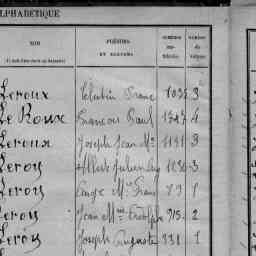 ALPHABÉTIQUE
NOM
PRÉNOMS
ET SURNOMS
NUMÉROS
NUMÉRO
du
volume
Leroux Célestin Franc 1035 3
Le Roux François Paul 1547 4
Leroux Joseph Jean Mie 1191 3
Leroy Albert Julien 3
Leroy Ange Mie Franc 1
Leroy Jean Mie 915 2
Leroy Joseph Auguste 331 1